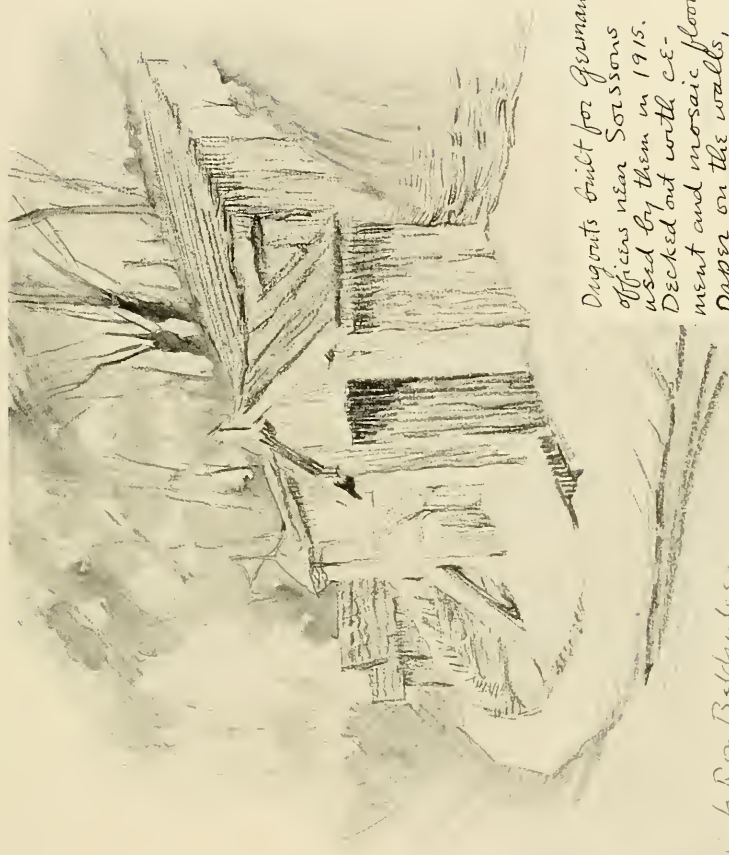 Dugouts built for German
officers near Soissons
used by them in 1915.
Decked out with ce-
ment and mosaic floor
Paper on the walls,